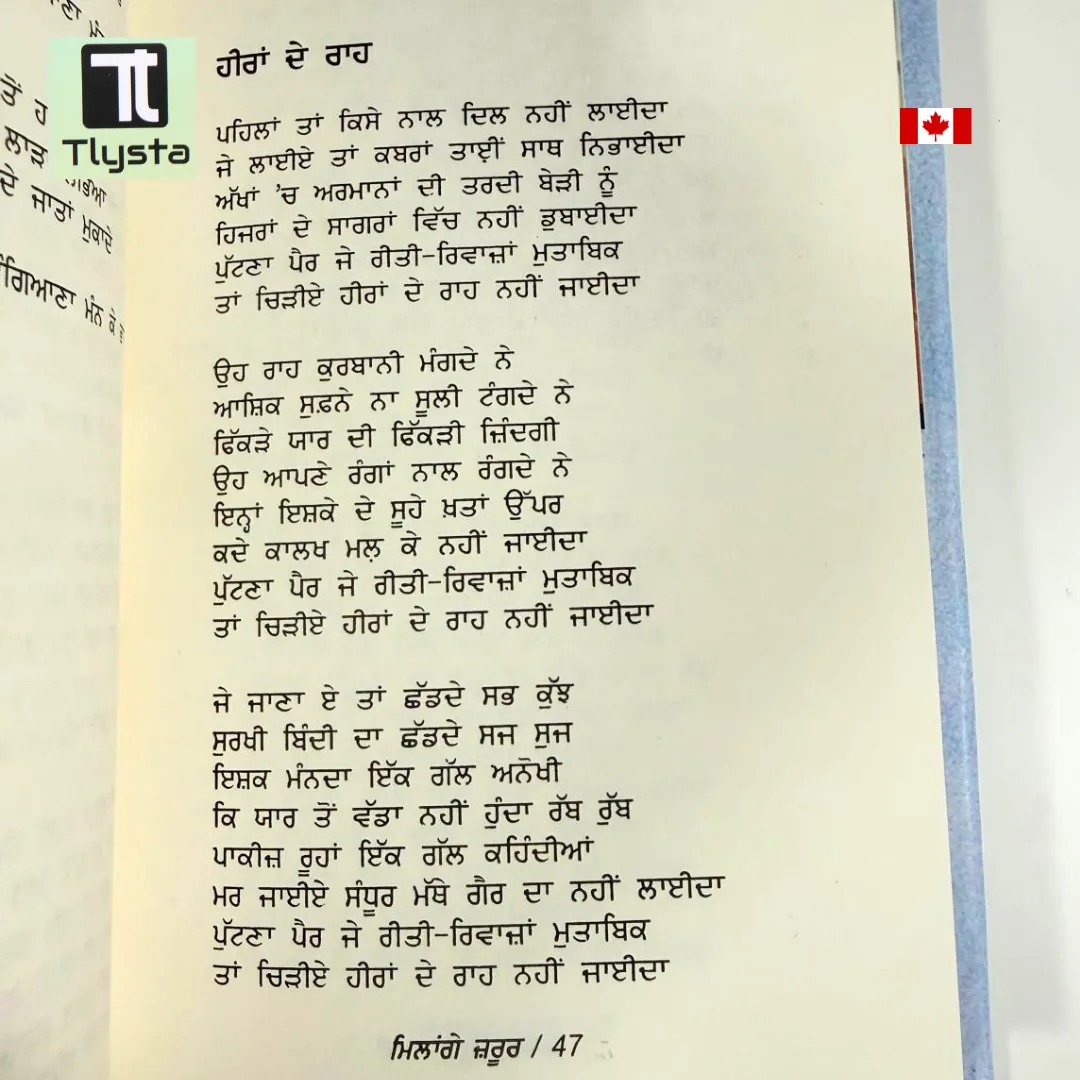 Tlysta
ਹੀਰਾਂ ਦੇ ਰਾਹ
ਪਹਿਲਾਂ ਤਾਂ ਕਿਸੇ ਨਾਲ ਦਿਲ ਨਹੀਂ ਲਾਈਦਾ
ਜੇ ਲਾਈਏ ਤਾਂ ਕਬਰਾਂ ਤਾਈਂ ਸਾਥ ਨਿਭਾਈਦਾ
ਅੱਖਾਂ 'ਚ ਅਰਮਾਨਾਂ ਦੀ ਤਰਦੀ ਬੇੜੀ ਨੂੰ
ਹਿਜਰਾਂ ਦੇ ਸਾਗਰਾਂ ਵਿੱਚ ਨਹੀਂ ਡੁਬਾਈਦਾ
ਪੁੱਟਣਾ ਪੈਰ ਜੇ ਰੀਤੀ-ਰਿਵਾਜ਼ਾਂ ਮੁਤਾਬਿਕ
ਤਾਂ ਚਿੜੀਏ ਹੀਰਾਂ ਦੇ ਰਾਹ ਨਹੀਂ ਜਾਈਦਾ
ਉਹ ਰਾਹ ਕੁਰਬਾਨੀ ਮੰਗਦੇ ਨੇ
ਆਸ਼ਿਕ ਸੁਫ਼ਨੇ ਨਾ ਸੂਲੀ ਟੰਗਦੇ ਨੇ
ਫਿੱਕੜੇ ਯਾਰ ਦੀ ਫਿੱਕੜੀ ਜ਼ਿੰਦਗੀ
ਉਹ ਆਪਣੇ ਰੰਗਾਂ ਨਾਲ ਰੰਗਦੇ ਨੇ
ਇਨ੍ਹਾਂ ਇਸ਼ਕੇ ਦੇ ਸੂਹੇ ਖ਼ਤਾਂ ਉੱਪਰ
ਕਦੇ ਕਾਲਖ ਮਲ਼ ਕੇ ਨਹੀਂ ਜਾਈਦਾ
ਪੁੱਟਣਾ ਪੈਰ ਜੇ ਰੀਤੀ-ਰਿਵਾਜ਼ਾਂ ਮੁਤਾਬਿਕ
ਤਾਂ ਚਿੜੀਏ ਹੀਰਾਂ ਦੇ ਰਾਹ ਨਹੀਂ ਜਾਈਦਾ
ਜੇ ਜਾਣਾ ਏ ਤਾਂ ਛੱਡਦੇ ਸਭ ਕੁੱਝ
ਸੁਰਖੀ ਬਿੰਦੀ ਦਾ ਛੱਡਦੇ ਸਜ ਸੁਜ
ਇਸ਼ਕ ਮੰਨਦਾ ਇੱਕ ਗੱਲ ਅਨੋਖੀ
ਕਿ ਯਾਰ ਤੋਂ ਵੱਡਾ ਨਹੀਂ ਹੁੰਦਾ ਰੱਬ ਰੁੱਬ
ਪਾਕੀਜ਼ ਰੂਹਾਂ ਇੱਕ ਗੱਲ ਕਹਿੰਦੀਆਂ
ਮਰ ਜਾਈਏ ਸੰਧੂਰ ਮੱਥੇ ਗੈਰ ਦਾ ਨਹੀਂ ਲਾਈਦਾ
ਪੁੱਟਣਾ ਪੈਰ ਜੇ ਰੀਤੀ-ਰਿਵਾਜ਼ਾਂ ਮੁਤਾਬਿਕ
ਤਾਂ ਚਿੜੀਏ ਹੀਰਾਂ ਦੇ ਰਾਹ ਨਹੀਂ ਜਾਈਦਾ
ਮਿਲਾਂਗੇ ਜ਼ਰੂਰ / 47
ਦੇ ਜਾਤਾਂ ਮੁਕਾਦੇ
ਮੰਨ ਕੇ